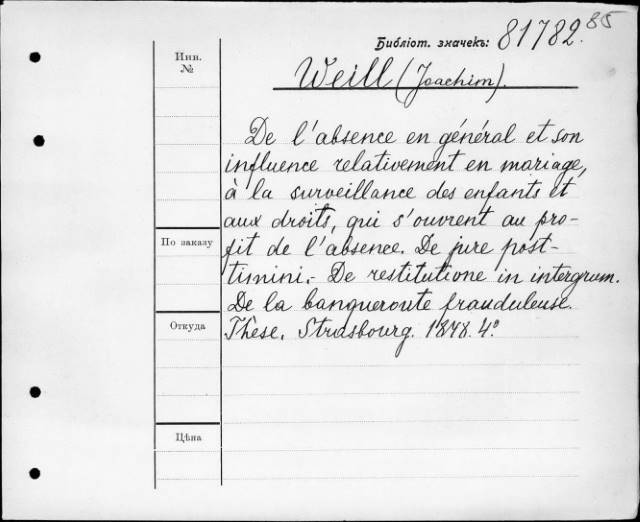 Библіот. значекъ: 81782.85
Инв.
№
Weill (Joachim).
De l'absence en général et son
influence relativement en mariage,
à la surveillance des enfants et
aux droits, qui s'ouvrent au pro-
fit de l'absence. De jure post-
timini.- De restitutione in intergrum.
De la banqueroute frauduleuse.
Thèse. Strasbourg. 1848. 4º
По заказу
Откуда
Цѣна